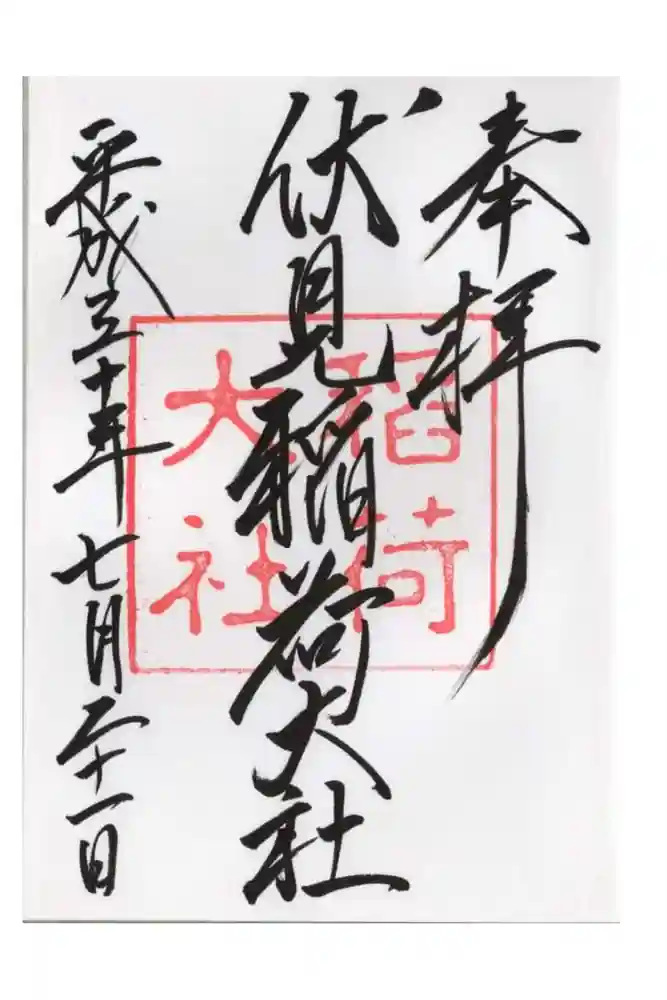 奉拝
伏見稲荷大社
平成三十年七月二十一日
稲荷
大社